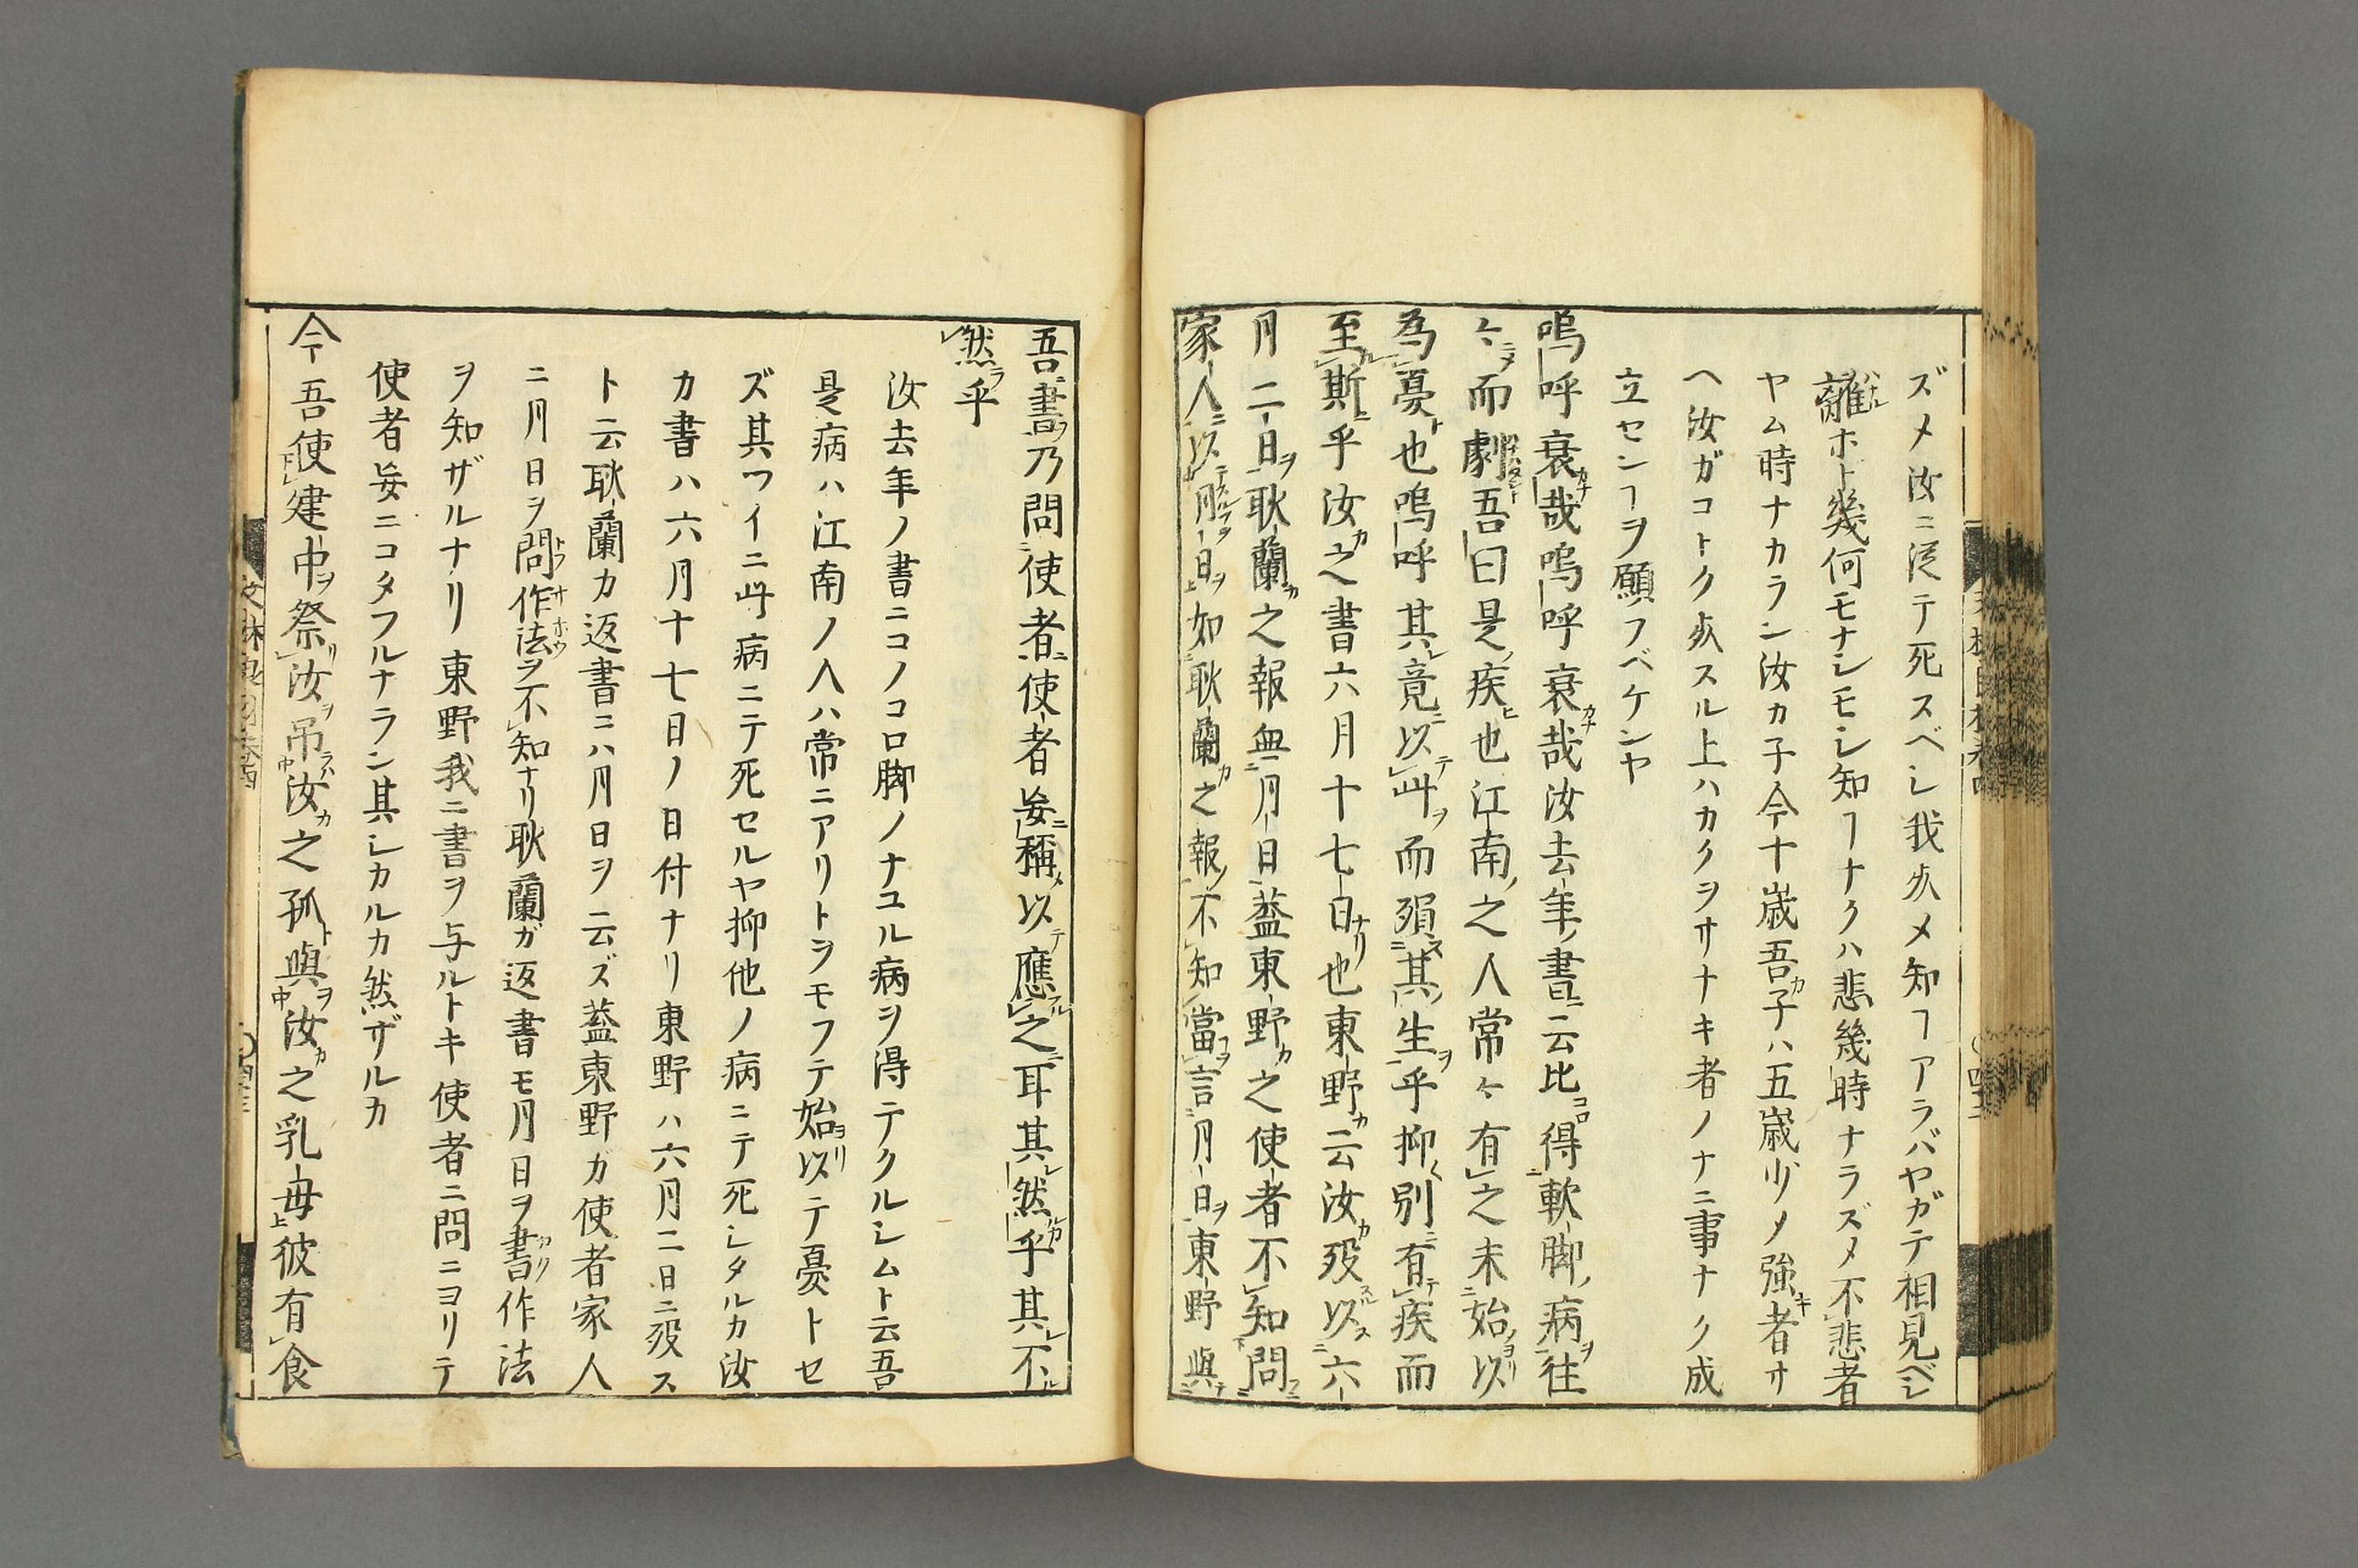 ズメ汝ニ從テ死スベシ我死メ知ヿアラバヤガテ相見ベシ
離ホド幾何モナシモシ知ヿナクハ悲幾時ナラズメ不悲者
ヤム時ナカラン汝カ子今十歳吾カ子ハ五歳少メ強キ者オ
ヘ汝ガコトク死スル上ハカクヲサナキ者ノナニ事ナク成
立センヿヲ願フベケンヤ
嗚呼哀哉嗚呼哀哉汝去年書云比得軟脚病往
々而劇吾曰是疾也江南之人常々有之未始以
為憂也嗚呼其竟以此而殞其生乎抑別有疾而
至斯乎汝之書六月十七日也東野云汝歿以六
月二日耿蘭之報無月日蓋東野之使者不知問
家人以月日如耿蘭之報不知當言月日東野與
吾書乃問使者使者妄稱以應之耳其然乎其不
然乎
汝去年ノ書ニコノコロ脚ノナユル病ヲ得テクルシムト云吾
是病ハ江南ノ人ハ常ニアリトヲモフテ始ヨリ以テ憂トセ
ズ其ツイニ此病ニテ死セルヤ抑他ノ病ニテ死シタルカ汝
カ書ハ六月十七日ノ日付ナリ東野ハ六月二日ニ歿ス
ト云耿蘭カ返書ニハ月日ヲ云ズ蓋東野カ使者家人
ニ月日ヲ問作法ヲ不知ナリ耿蘭ガ返書モ月日ヲ書作法
ヲ知ザルナリ東野我ニ書ヲ与ルトキ使者ニ問ニヨリテ
使者妄ニコタフルナラン其シカルカ然ザルカ
今吾使建中祭汝吊汝之孤與汝之乳母彼有食